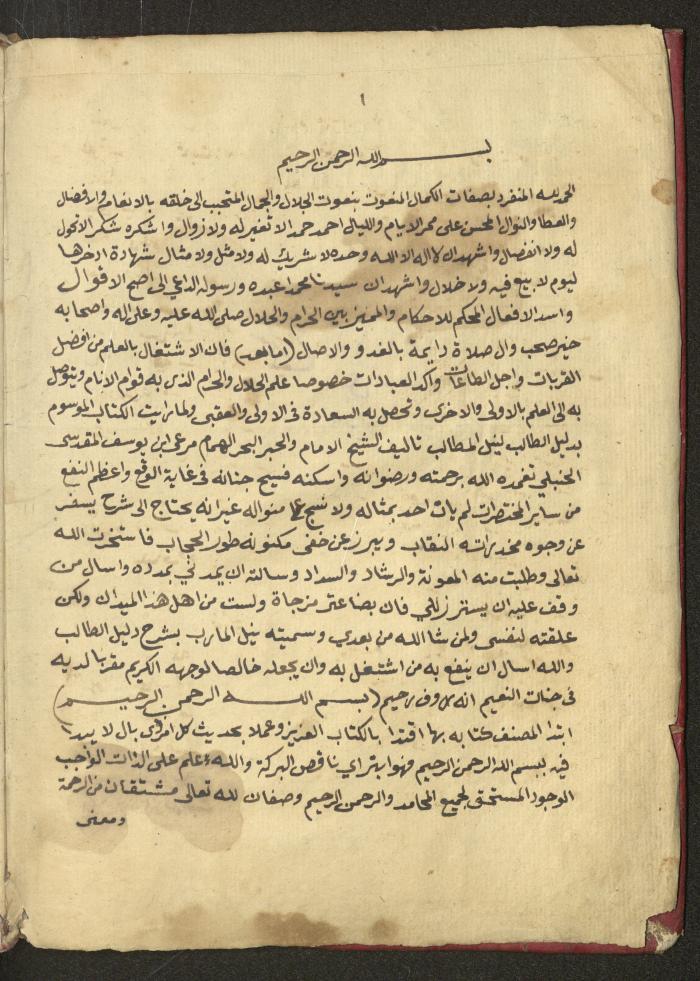 ١
بسم الله الرحمن الرحيم
الحمد لله المنفرد بصفات الكمال المنعوت بنعوت الجلال والجمال المتحبب الى خلقه بالانعام والافضال
والعطا والنوال المحسن على ممر الايام والليال احمده حمدا لا تغير له ولا زوال واشكره شكرا لا تحول
له ولا انفصال واشهد ان لا اله الا الله وحده لا شريك له ولا مثل ولا مثال شهادة ادخرها
ليوم لا بيع فيه ولا خلال واشهد ان سيدنا محمدا عبده ورسوله الداعي الى اصح الاقوال
واسد الافعال المحكم للاحكام والمميز بين الحرام والحلال صلى الله عليه وعلى اله واصحابه
خير صحب وال صلاة دايمة بالغدو والاصال (اما بعد) فان الاشتغال بالعلم من افضل
القربات واجل الطاعات واكد العبادات خصوصا علم الحلال والحرام الذي به قوام الانام ويتوصل
به الى العلم بالاولى والاخرى وتحصل به السعادة في الاولى والعقبى ولما رايت الكتاب الموسوم
بدليل الطالب لنيل المطالب تاليف الشيخ الامام والحبر البحر الهمام مرعي ابن يوسف المقدسى
الحنبلي تغمده الله برحمته ورضوانه واسكنه فسيح جنانه في غاية الوقع واعظم النفع
من ساير المختصرات لم يات احد بمثاله ولا نسج على منواله غير انه يحتاج الى شرح يسفر
عن وجوه مخدراته النقاب ويبرز عن خفي مكنونه طور الحجاب فاستخرت الله
تعالى وطلبت منه المعونة والرشاد والسداد وسالته ان يمدني بمدده واسال من
وقف عليه ان يستر زللي فان بضاعتي مزجاة ولست من اهل هذا الميدان ولكن
علقته لنفسى ولمن شا الله من بعدي وسميته نيل المارب بشرح دليل الطالب
والله اسال ان ينفع به من اشتغل به وان يجعله خالصا لوجهه الكريم مقربا لديه
في جنات النعيم انه روف رحيم (بسم الله الرحمن الرحيم)
ابتدا المصنف كتابه بها اقتدا بالكتاب العزيز وعملا بحديث كل امر ذي بال لا يبدا
فيه ببسم الله الرحمن الرحيم فهو ابتر اي ناقص البركة والله علم على الذات الواجب
الوجود المستحق لجميع المحامد والرحمن الرحيم وصفان لله تعالى مشتقان من الرحمة
ومعنى